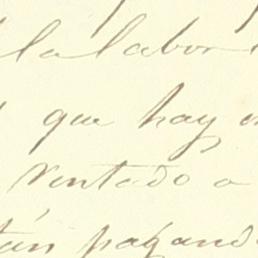 la labor
que hay
ventado a
tán pagand